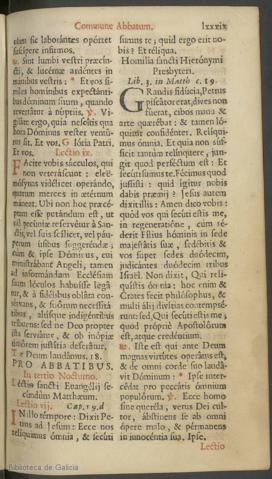 Commune Abbatum. lxxxix
olum sic laborantes opórtet
suscípere infirmos.
℟. Sint lumbi vestri præcíncti, & lucérnæ ardéntes in
mánibus vestris: * Et vos símiles homínibus expectántibus dóminum suum, quando
revertátur à núptijs. ℣. Vigiláte ergo, quia nescítis qua
hora Dóminus vester ventúrus sit. Et vos. Glória Patri.
Et vos. Lectio ix.
FAcite vobis sácculos, qui
non veteráscunt: eleemósynas vidélicet operándo,
quarum merces in ætérnum
máneat. Ubi non hoc præcéptum esse putándum est, ut
nil pecúniæ reservétur à Sanctis, vel suis scílicet, vel páuperum úsibus suggeréndæ;
cum & ipse Dóminus, cui
ministrábant Angeli, tamen
ad informándam Ecclésiam
suam lóculos habuísse legátur, & à fidélibus obláta consérvans, & suórum necessitátibus, aliísque indigéntibus
tríbuens: sed ne Deo propter
ista serviátur, & ob inópiæ
timórem justítia deserátur.
Te Deum laudámus. 18.
PRO ABBATIBUS.
In tertio Nocturno.
Léctio sancti Evangélij secúndum Matthǽum.
Lectio vij. Cap. 19. d
IN illo témpore: Dixit Petrus ad Jesum: Ecce nos
relíquimus ómnia, & secúti
sumus te; quid ergo erit nobis? Et réliqua.
Homilía sancti Hierónymi
Presbyteri.
Lib. 3. in Matth. c. 19.
GRandis fidúcia, Petrus
piscátor erat, dives non
fúerat, cibos manu &
arte quærébat: & tamen lóquitur confidénter. Relíquimus ómnia. Et quia non súfficit tantùm relínquere, jungit quod perféctum est: Et
secúti sumus te. Fécimus quod
jussísti: quid ígitur nobis
dabis prǽmij? Jesus autem
dixit illis: Amen dico vobis:
quòd vos qui secúti estis me,
in regeneratióne, cum séderit Fílius hóminis in sede
majestátis suæ, sedébitis &
vos super sedes duódecim,
judicántes duódecim tribus
Israël. Non dixit, Qui reliquístis ómnia: hoc enim &
Crates fecit philósophus, &
multi álij divítias contempsérunt: sed, Qui secúti estis me,
quod própriè Apostolórum
est, atque credéntium.
℟. Iste est qui ante Deum
magnas virtútes operátus est,
& de omni corde suo laudávit Dóminum: * Ipse intercédat pro peccátis ómnium
populórum. ℣. Ecce homo
sine queréla, verus Dei cultor, ábstinens se ab omni
ópere malo, & pérmanens
in innocéntia sua. Ipse.
Lectio
Biblioteca de Galicia